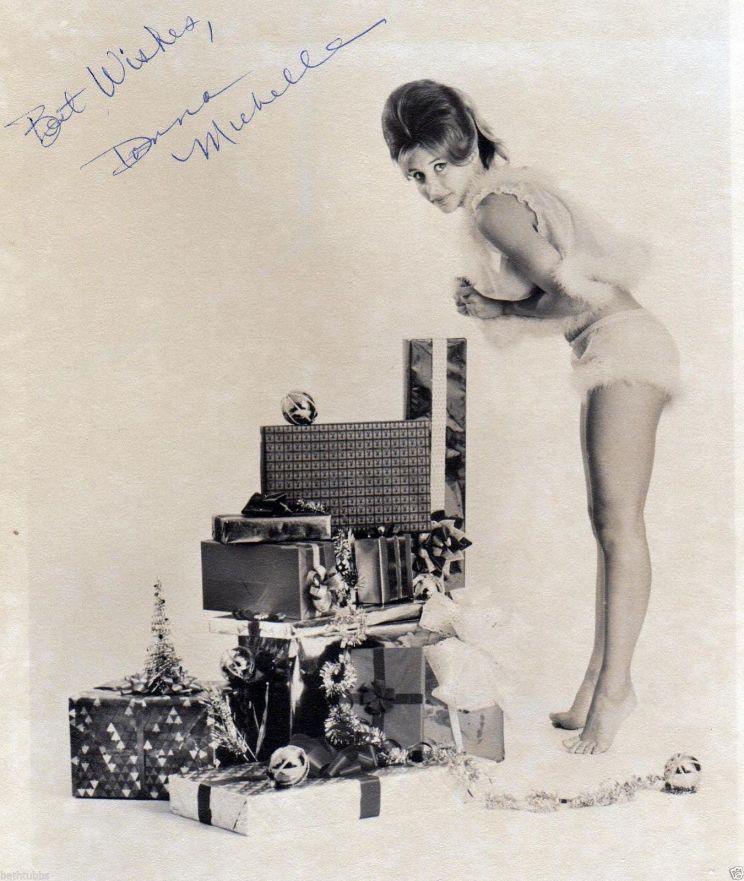 Best Wishes,
Donna
Michelle
bathtubbs